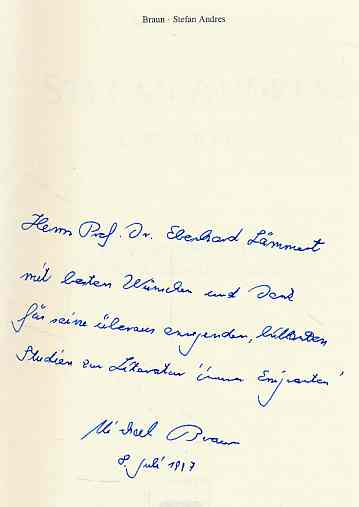 Braun · Stefan Andres
Herrn Prof. Dr. Eberhard Lämmert
mit besten Wünschen und Dank
für seine überaus anregenden,
Studien zur Literatur 'innerer Emigranten'
Michael Braun
8. Juli 1997